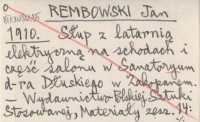 REMBOWSKI Jan
1910. Słup z latarnią
elektryczną na schodach i
część salonu w Sanatoryum
d-ra Dłuskiego w Zakopanem.
— Wydawnictwo Polskiej Sztuki
Stosowanej, Materiały zesz. 14: